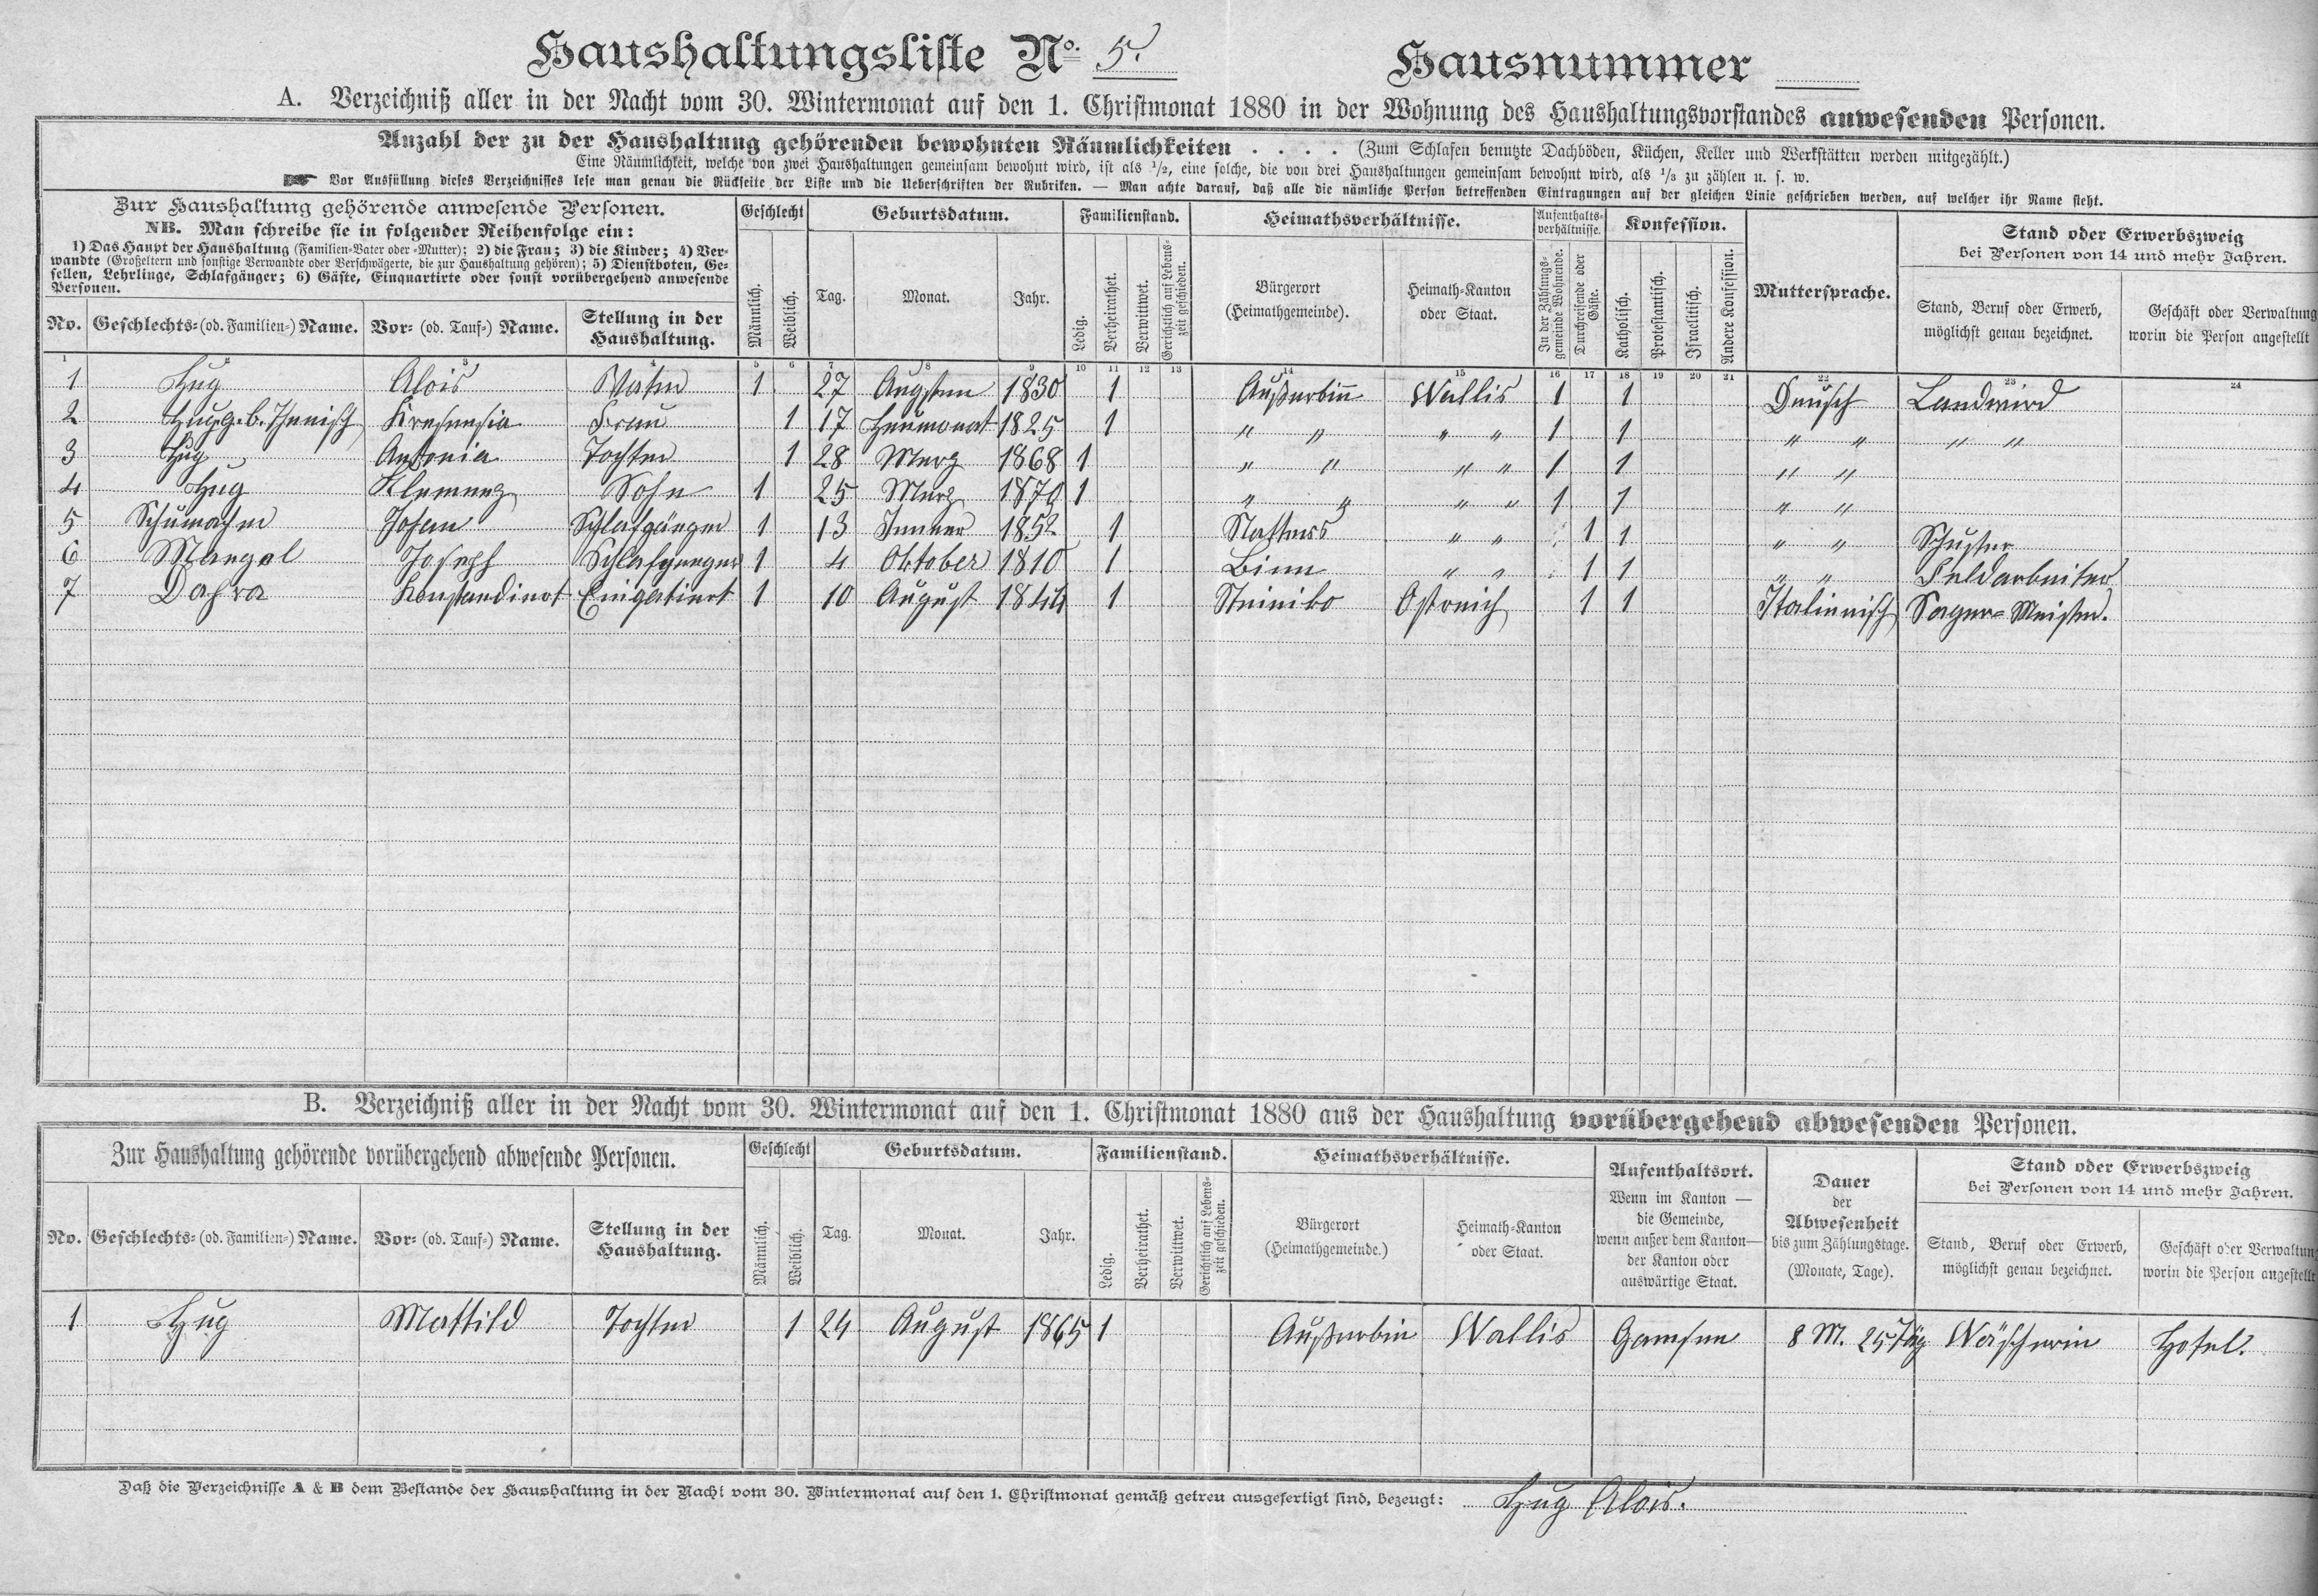 Haushaltungsliste No. 5. Hausnummer
A. Verzeichniß aller in der Nacht vom 30. Wintermonat auf den 1. Christmonat 1880 in der Wohnung des Haushaltungsvorstandes anwesenden Personen.
Anzahl der zu der Haushaltung gehörenden bewohnten Räumlichkeiten . . . . (Zum Schlafen benutzte Dachböden, Küchen, Keller und Werkstätten werden mitgezählt.)
Eine Räumlichkeit, welche von zwei Haushaltungen gemeinsam bewohnt wird, ist als 1/2, eine solche, die von drei Haushaltungen gemeinsam bewohnt wird, als 1/3 zu zählen u. s. w.
Vor Ausfüllung dieses Verzeichnisses lese man genau die Rückseite der Liste und die Ueberschriften der Rubriken. — Man achte darauf, daß alle die nämliche Person betreffenden Eintragungen auf der gleichen Linie geschrieben werden, auf welcher ihr Name steht.
Zur Haushaltung gehörende anwesende Personen.
NB. Man schreibe sie in folgender Reihenfolge ein:
1) Das Haupt der Haushaltung (Familien-Vater oder -Mutter); 2) die Frau; 3) die Kinder; 4) Ver-
wandte (Großeltern und sonstige Verwandte oder Verschwägerte, die zur Haushaltung gehören); 5) Dienstboten, Ge-
sellen, Lehrlinge, Schlafgänger; 6) Gäste, Einquartirte oder sonst vorübergehend anwesende
Personen.
No. Geschlechts- (od. Familien-) Name. Vor- (od. Tauf-) Name. Stellung in der Haushaltung.
Geschlecht
Männlich. Weiblich.
Geburtsdatum.
Tag. Monat. Jahr.
Familienstand.
Ledig. Verheirathet. Verwittwet. Gerichtlich auf Lebens- zeit geschieden.
Heimathsverhältnisse.
Bürgerort (Heimathgemeinde). Heimath-Kanton oder Staat.
Aufenthalts- verhältnisse.
In der Zählungs- gemeinde Wohnende. Durchreisende oder Gäste.
Konfession.
Katholisch. Protestantisch. Israelitisch. Andere Konfession.
Muttersprache.
Stand oder Erwerbszweig
bei Personen von 14 und mehr Jahren.
Stand, Beruf oder Erwerb, möglichst genau bezeichnet. Geschäft oder Verwaltung worin die Person angestellt
1 2 3 4 5 6 7 8 9 10 11 12 13 14 15 16 17 18 19 20 21 22 23 24
1 Hug Alois Vater 1 27 Augsten 1830 1 Außerbin Wallis 1 1 Deusch Landwird
2 Hug g.b. Thenisch Kresensia Frau 1 17 Heumonat 1825 1 " " " " 1 1 " " " "
3 Hug Antonia Tochter 1 28 Merz 1868 1 " " " " 1 1 " "
4 Hug Klemenz Sohn 1 25 Merz 1870 1 " " " " 1 1 " "
5 Schumacher Johan Schlafgänger 1 13 Jenner 1852 1 Naters " " 1 1 " " Schuster
6 Mangel Joseph Schlafgenger 1 4 Oktober 1810 1 Binn " " 1 1 " " Feldarbeiter
7 1 10 August 1844 1 Steiniko Ostreich 1 1 Italienisch Sager-Meister.
B. Verzeichniß aller in der Nacht vom 30. Wintermonat auf den 1. Christmonat 1880 aus der Haushaltung vorübergehend abwesenden Personen.
Zur Haushaltung gehörende vorübergehend abwesende Personen.
No. Geschlechts- (od. Familien-) Name. Vor- (od. Tauf-) Name. Stellung in der Haushaltung.
Geschlecht
Männlich. Weiblich.
Geburtsdatum.
Tag. Monat. Jahr.
Familienstand.
Ledig. Verheirathet. Verwittwet. Gerichtlich auf Lebens- zeit geschieden.
Heimathsverhältnisse.
Bürgerort (Heimathgemeinde.) Heimath-Kanton oder Staat.
Aufenthaltsort.
Wenn im Kanton —
die Gemeinde,
wenn außer dem Kanton—
der Kanton oder
auswärtige Staat.
Dauer
der
Abwesenheit
bis zum Zählungstage.
(Monate, Tage).
Stand oder Erwerbszweig
bei Personen von 14 und mehr Jahren.
Stand, Beruf oder Erwerb, möglichst genau bezeichnet. Geschäft oder Verwaltung worin die Person angestellt
1 Hug Mattild Tochter 1 24 August 1865 1 Außerbin Wallis Gamsen 8 M. 25 Täg Wäscherin Hotel.
Daß die Verzeichnisse A & B dem Bestande der Haushaltung in der Nacht vom 30. Wintermonat auf den 1. Christmonat gemäß getreu ausgefertigt sind, bezeugt: Hug Alois.